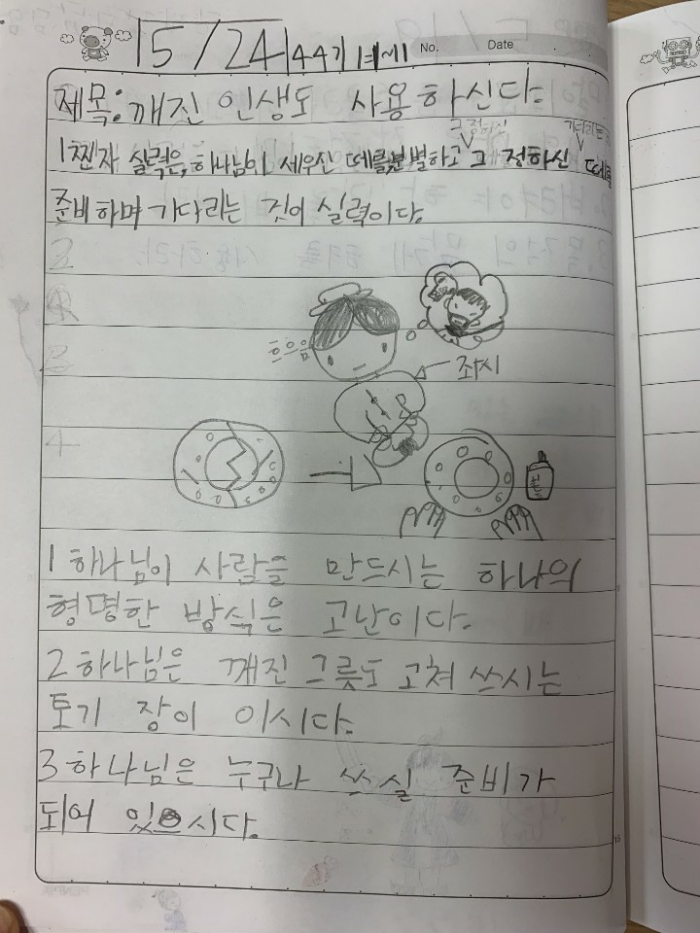 5/24
No. Date
제목: 깨진 인생도 사용하신다.
그 정하신
1찐자 실력은, 하나님이 세우신 떼를 분별하고 그 정하신 떼를
준비하며 기다리는 것이 실력이다.
2
3
흐음
좌시
4
1 하나님이 사람을 만드시는 하나의
형명한 방식은 고난이다.
2 하나님은 깨진 그릇도 고쳐 쓰시는
토기 장이 이시다.
3 하나님은 누구나 쓰실 준비가
되어 있으시다.